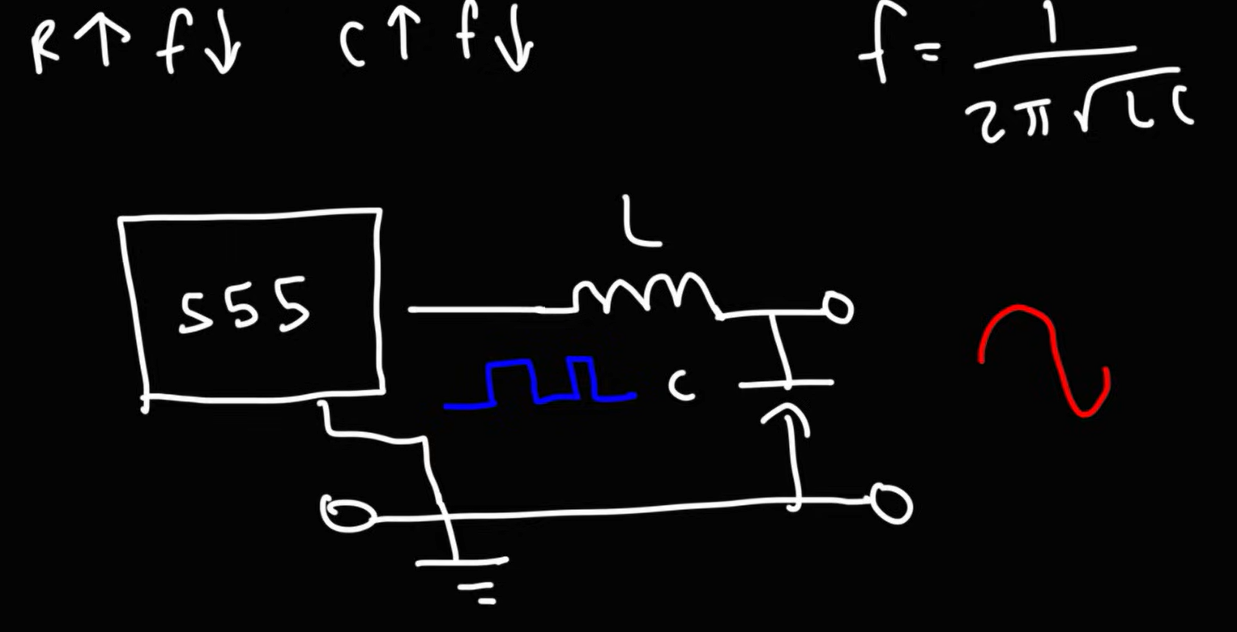 R↑ f↓ C↑ f↓
f = 1 / 2π√LC
L
555
C